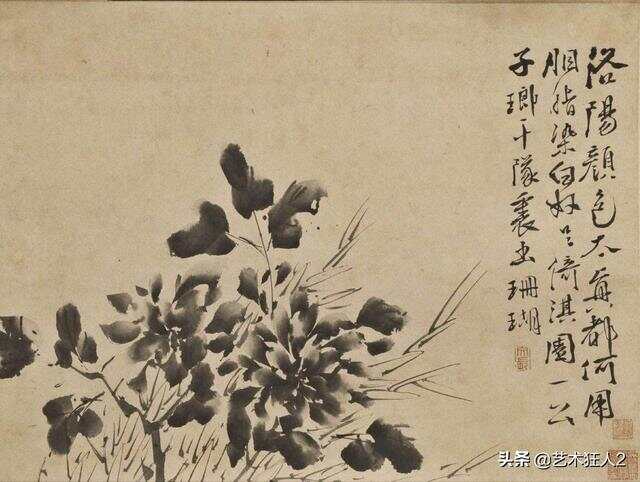 洛陽顔色太都何用
胭脂染白奴只倚淇園一公
子瑯干隊裏出珊瑚
头条 @艺术狂人2